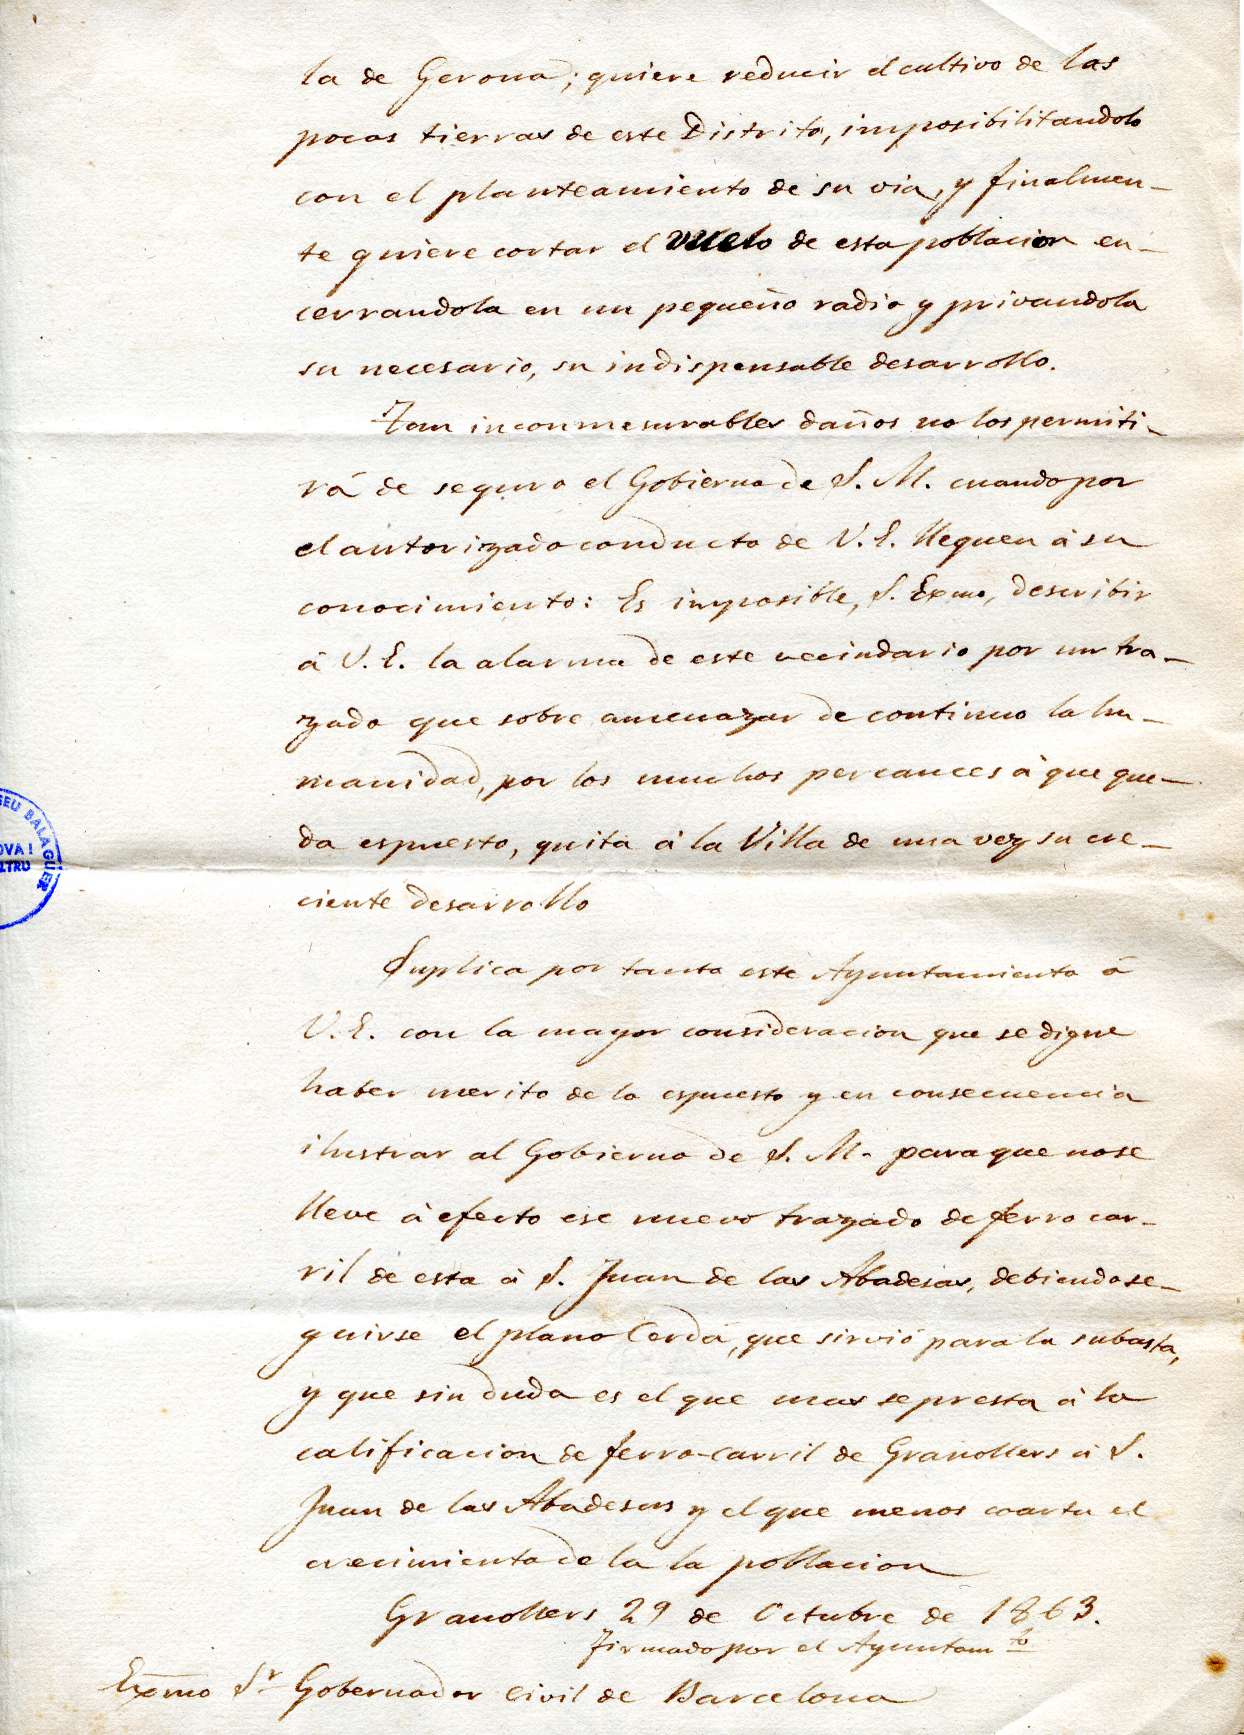 la de Gerona; quiere reducir el cultivo de las
pocas tierras de este Distrito, imposibilitandolo
con el planteamiento de su via, y finalmen-
te quiere cortar el vuelo de esta poblacion en-
cerrandola en un pequeño radio y privandola
su necesario, su indispensable desarrollo.
Tan inconmesurables daños no los permiti-
rá de seguro el Gobierno de S. M. cuando por
el autorizado conducto de V. E. lleguen á su
conocimiento: Es imposible, S. Exmo, describir
á V. E. la alarma de este vecindario por un tra-
zado que sobre amenazar de continuo la hu-
manidad, por los muchos percances á que que-
da espuesto, quita á la Villa de una vez su cre-
ciente desarrollo
Suplica por tanto este Ayuntamiento á
V. E. con la mayor consideracion que se digne
haber merito de lo espuesto y en consecuencia
ilustrar al Gobierno de S. M. para que no se
lleve á efecto ese nuevo trazado de ferro car-
ril de esta á S. Juan de las Abadesas, debiendo se-
guirse el plano Cerdá, que sirvió para la subasta,
y que sin duda es el que mas se presta á la
calificacion de ferro-carril de Granollers á S.
Juan de las Abadesas y el que menos coarta el
crecimiento de la la poblacion
Granollers 29 de Octubre de 1863.
Firmado por el Ayuntamto
Exmo Sr Gobernador Civil de Barcelona
SEU BALAGUER
OVA I
LTRU